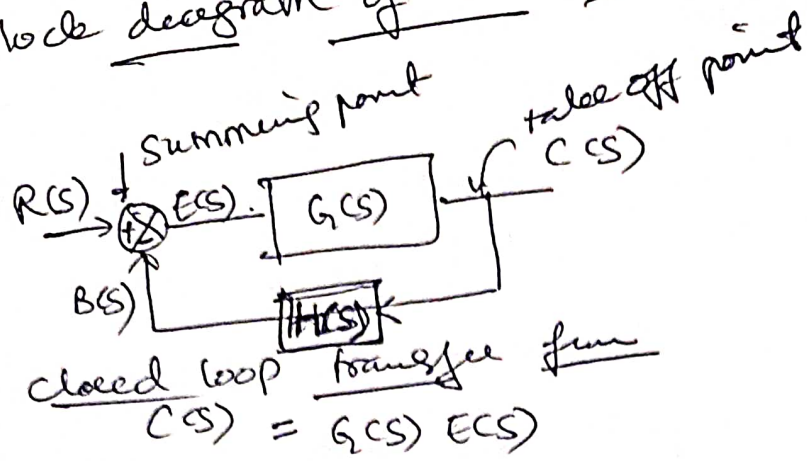 lock diagram of
summing point
take off point
R(S)
+
-
E(S)
G(S)
C(S)
B(S)
H(S)
closed loop transfer fun
C(S) = G(S) E(S)